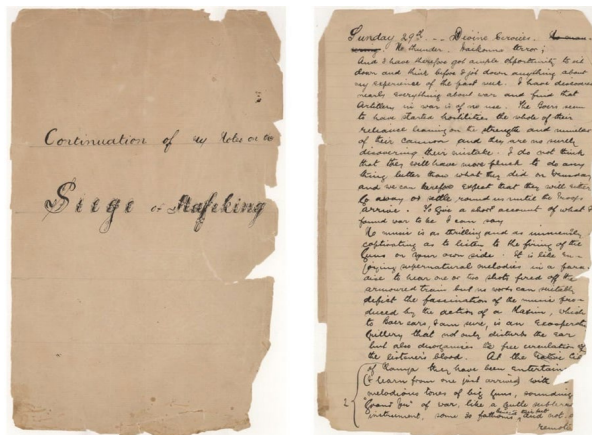 3
Continuation of my Notes on the
Siege of Mafeking
Sunday 29th ... Divine Services.
No thunder. Haikonna terror;
and I have therefore got ample opportunity to sit
down and think before I jot down anything about
my experience of the past week. I have discovered
nearly everything about war and find that
Artillery in war is of no use. The Boers seem
to have started hostilities the whole of their
reliance leaning on the strength and number
of their cannon and they are no surely
discovering their mistake. I do not think
that they will have more pluck to do any
thing better than what they did on
and we can therefore expect that they will either
go away or settle round us until the troops
arrive. To give a short account of what I
found war to be I can say
No music is as thrilling and as immensely
captivating as to listen to the firing of the
Guns on your own side. It is like en-
joying supernatural melodies in a para-
dise to hear one or two shots fired off the
armoured train but no words can suitably
depict the fascination of the music pro-
duced by the action of a Maxim, which
to Boer ears, I am sure, is an
that not only disturbs the ear
but also disorganises the free circulation of
the listener's blood. At the
of Kanya they have been entertained
(I learn from one just arrived) with
melodious tones of big guns, sounding
"Grand Jeu" of war, like a
instrument, some fathoms and not
remote